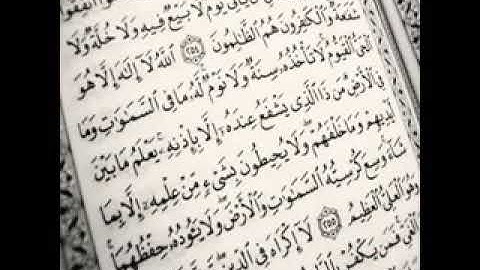 يوم لا بيع فيه ولا خلة ولا
شفعة والكفرون هم الظلمون ٢٥٤ الله لا إله إلا هو
الحى القيوم لا تأخذه سنة ولا نوم له ما فى السموت وما
فى الأرض من ذا الذى يشفع عنده إلا بإذنه يعلم ما بين
أيديهم وما خلفهم ولا يحيطون بشىء من علمه إلا بما
شاء وسع كرسيه السموت والأرض ولا يئوده حفظهما
وهو العلى العظيم ٢٥٥ لا إكراه فى الدين
الغى فمن يكفر